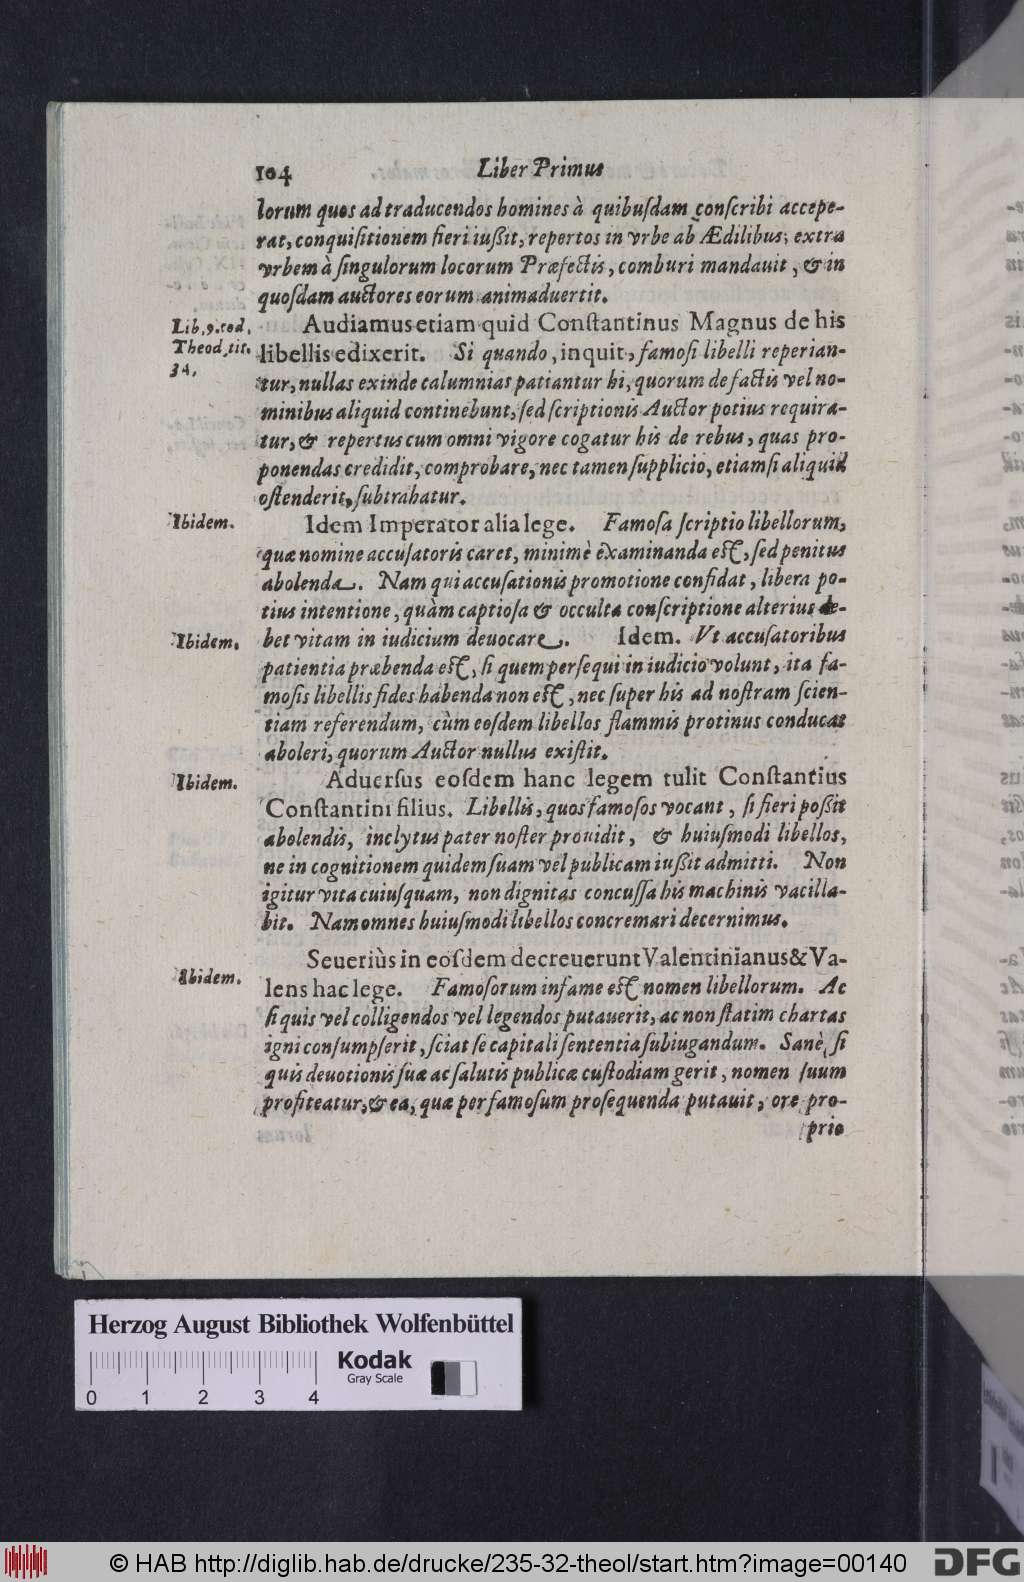 104 Liber Primus
lorum quos ad traducendos homines à quibuſdam conſcribi accepe-
rat, conquiſitionem fieri iußit, repertos in vrbe ab Ædilibus, extra
vrbem à ſingulorum locorum Præfectis, comburi mandauit, & in
quoſdam auctores eorum animaduertit.
Lib. 9. cod.
Theod. tit.
34.
Audiamus etiam quid Conſtantinus Magnus de his
libellis edixerit. Si quando, inquit, famoſi libelli reperian-
tur, nullas exinde calumnias patiantur hi, quorum de factis vel no-
minibus aliquid continebunt, ſed ſcriptionis Auctor potius requira-
tur, & repertus cum omni vigore cogatur his de rebus, quas pro-
ponendas credidit, comprobare, nec tamen ſupplicio, etiamſi aliquid
oſtenderit, ſubtrahatur.
Ibidem.
Idem Imperator alia lege. Famoſa ſcriptio libellorum,
quæ nomine accuſatoris caret, minimè examinanda eſt, ſed penitus
abolenda. Nam qui accuſationis promotione confidat, libera po-
tius intentione, quàm captioſa & occulta conſcriptione alterius de-
Ibidem.
bet vitam in iudicium deuocare. Idem. Vt accuſatoribus
patientia præbenda eſt, ſi quem perſequi in iudicio volunt, ita fa-
moſis libellis fides habenda non eſt, nec ſuper his ad noſtram ſcien-
tiam referendum, cùm eoſdem libellos flammis protinus conducat
aboleri, quorum Auctor nullus exiſtit.
Ibidem.
Aduerſus eoſdem hanc legem tulit Conſtantius
Conſtantini filius. Libellis, quos famoſos vocant, ſi fieri poßit
abolendis, inclytus pater noſter prouidit, & huiuſmodi libellos,
ne in cognitionem quidem ſuam vel publicam iußit admitti. Non
igitur vita cuiuſquam, non dignitas concuſſa his machinis vacilla-
bit. Nam omnes huiuſmodi libellos concremari decernimus.
Ibidem.
Seueriùs in eoſdem decreuerunt Valentinianus & Va-
lens hac lege. Famoſorum infame eſt nomen libellorum. Ac
ſi quis vel colligendos vel legendos putauerit, ac non ſtatim chartas
igni conſumpſerit, ſciat ſe capitali ſententia ſubiugandum. Sanè, ſi
quis deuotionis ſuæ ac ſalutis publicæ cuſtodiam gerit, nomen ſuum
profiteatur, & ea, quæ per famoſum proſequenda putauit, ore pro-
prio
Herzog August Bibliothek Wolfenbüttel
Kodak
Gray Scale
0 1 2 3 4
© HAB http://diglib.hab.de/drucke/235-32-theol/start.htm?image=00140
DFG